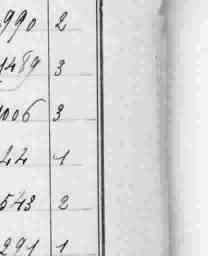 990 2
1489 3
1006 3
22 1
543 2
291 1